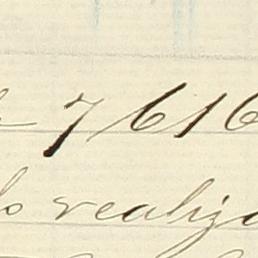 7616
lo realiza